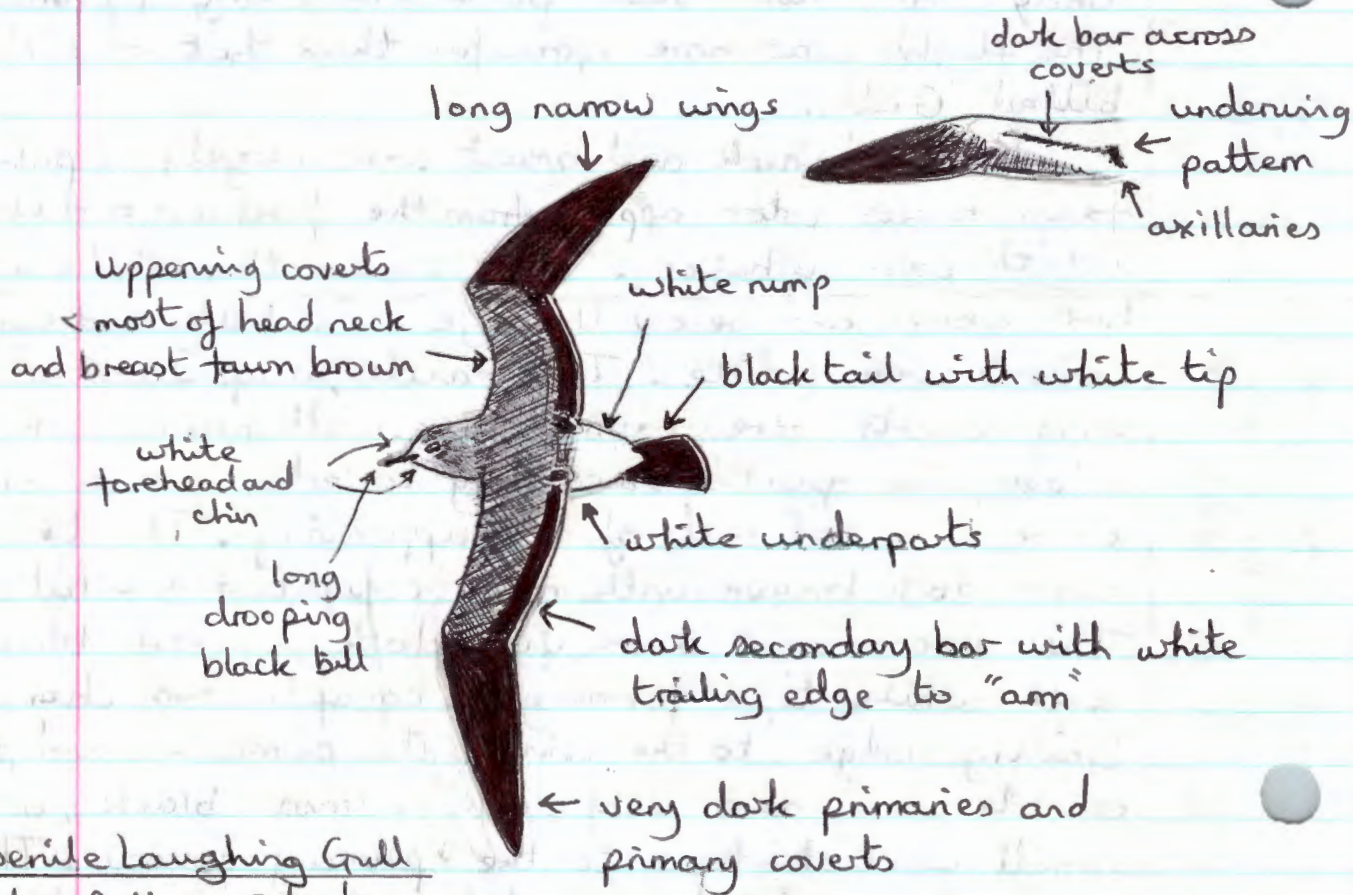 dark bar across
coverts
underwing
pattern
axillaries
long narrow wings
upperwing coverts
most of head neck
and breast fawn brown
white rump
black tail with white tip
white
forehead and
chin
long
drooping
black bill
white underparts
dark secondary bar with white
trailing edge to "arm"
very dark primaries and
primary coverts
Laughing Gull